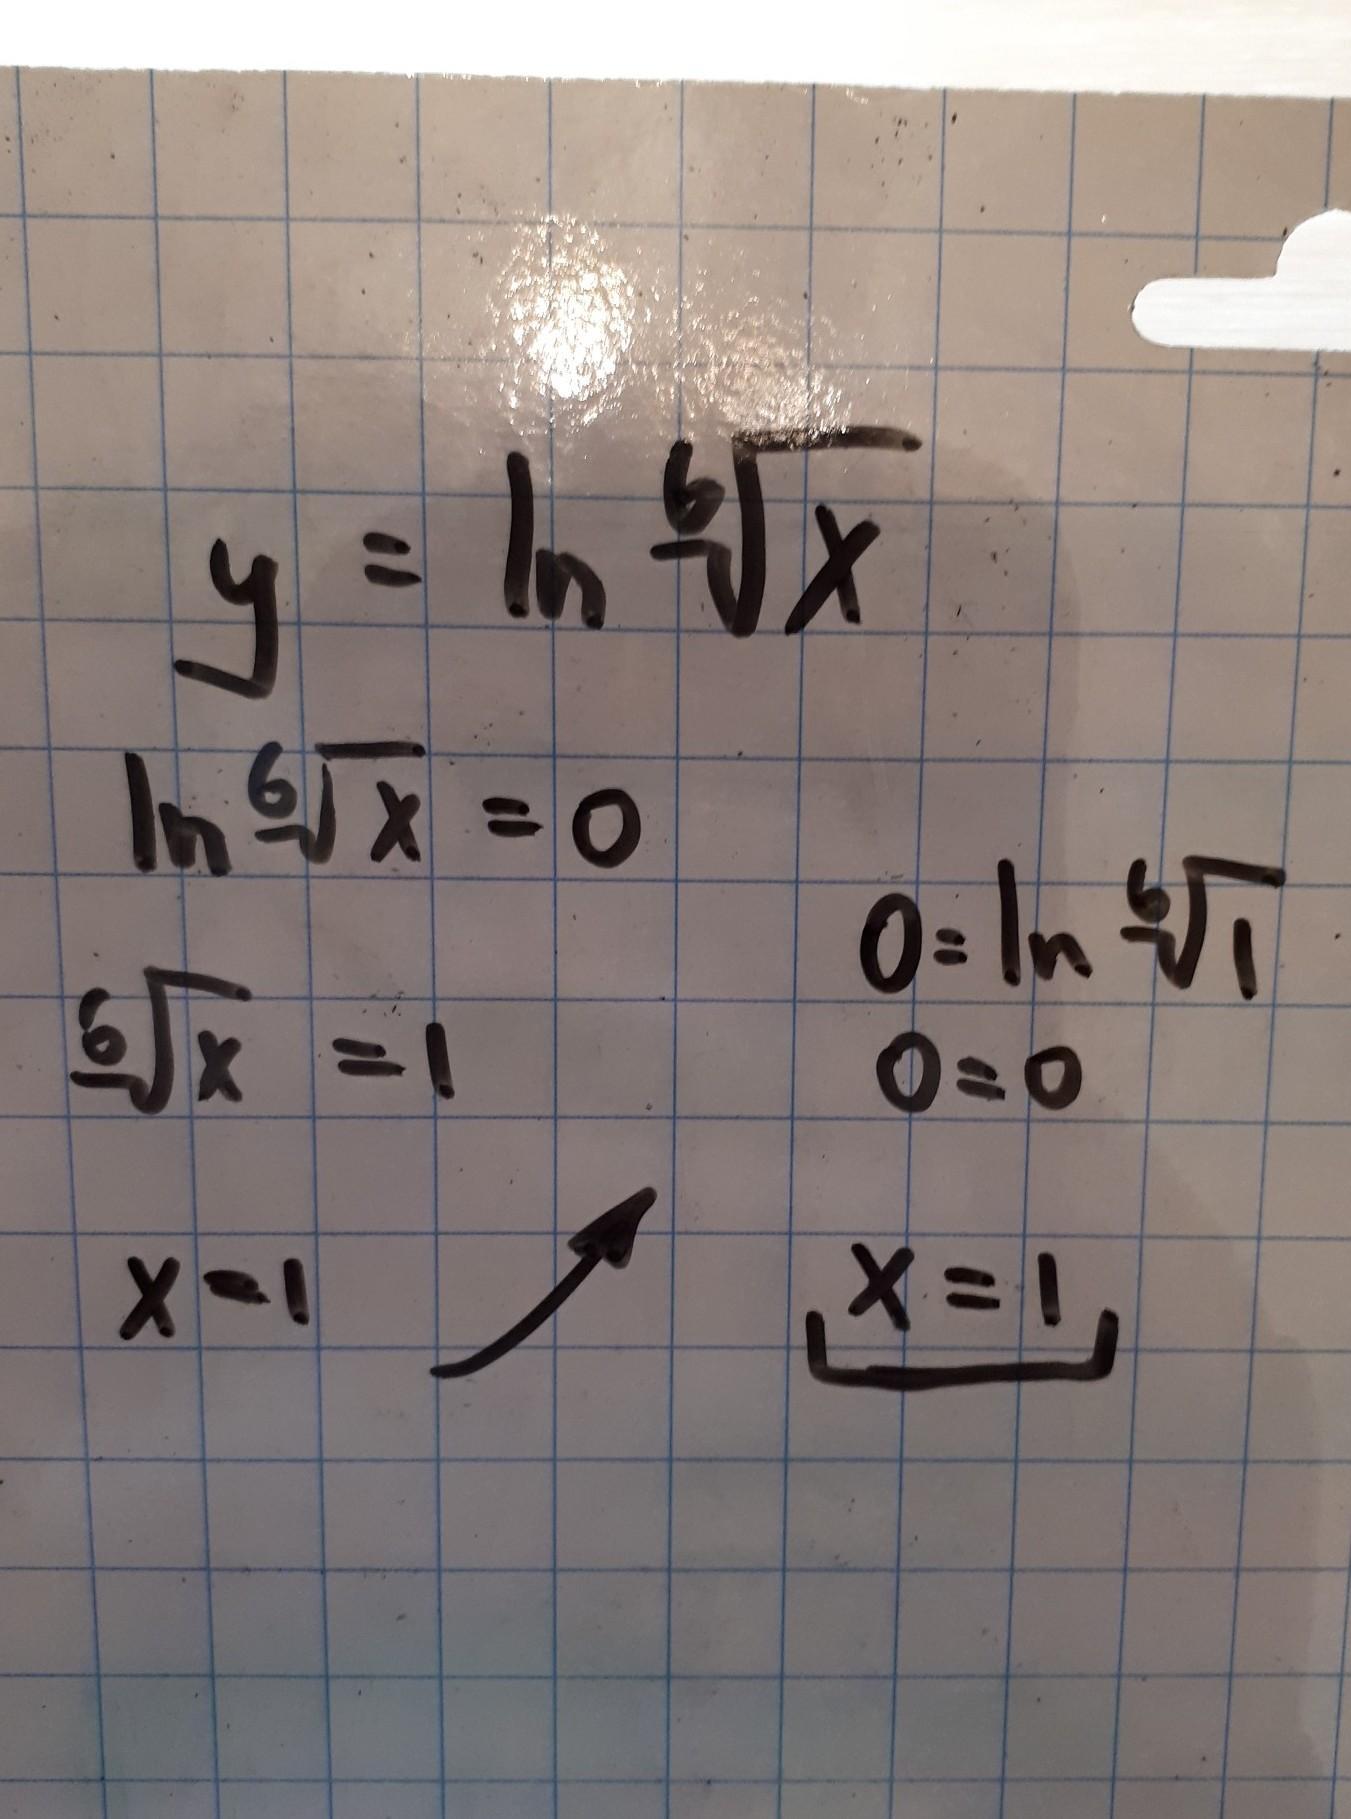 y = ln ⁶√x
ln ⁶√x = 0
⁶√x = 1
x = 1
0 = ln ⁶√1
0 = 0
x = 1